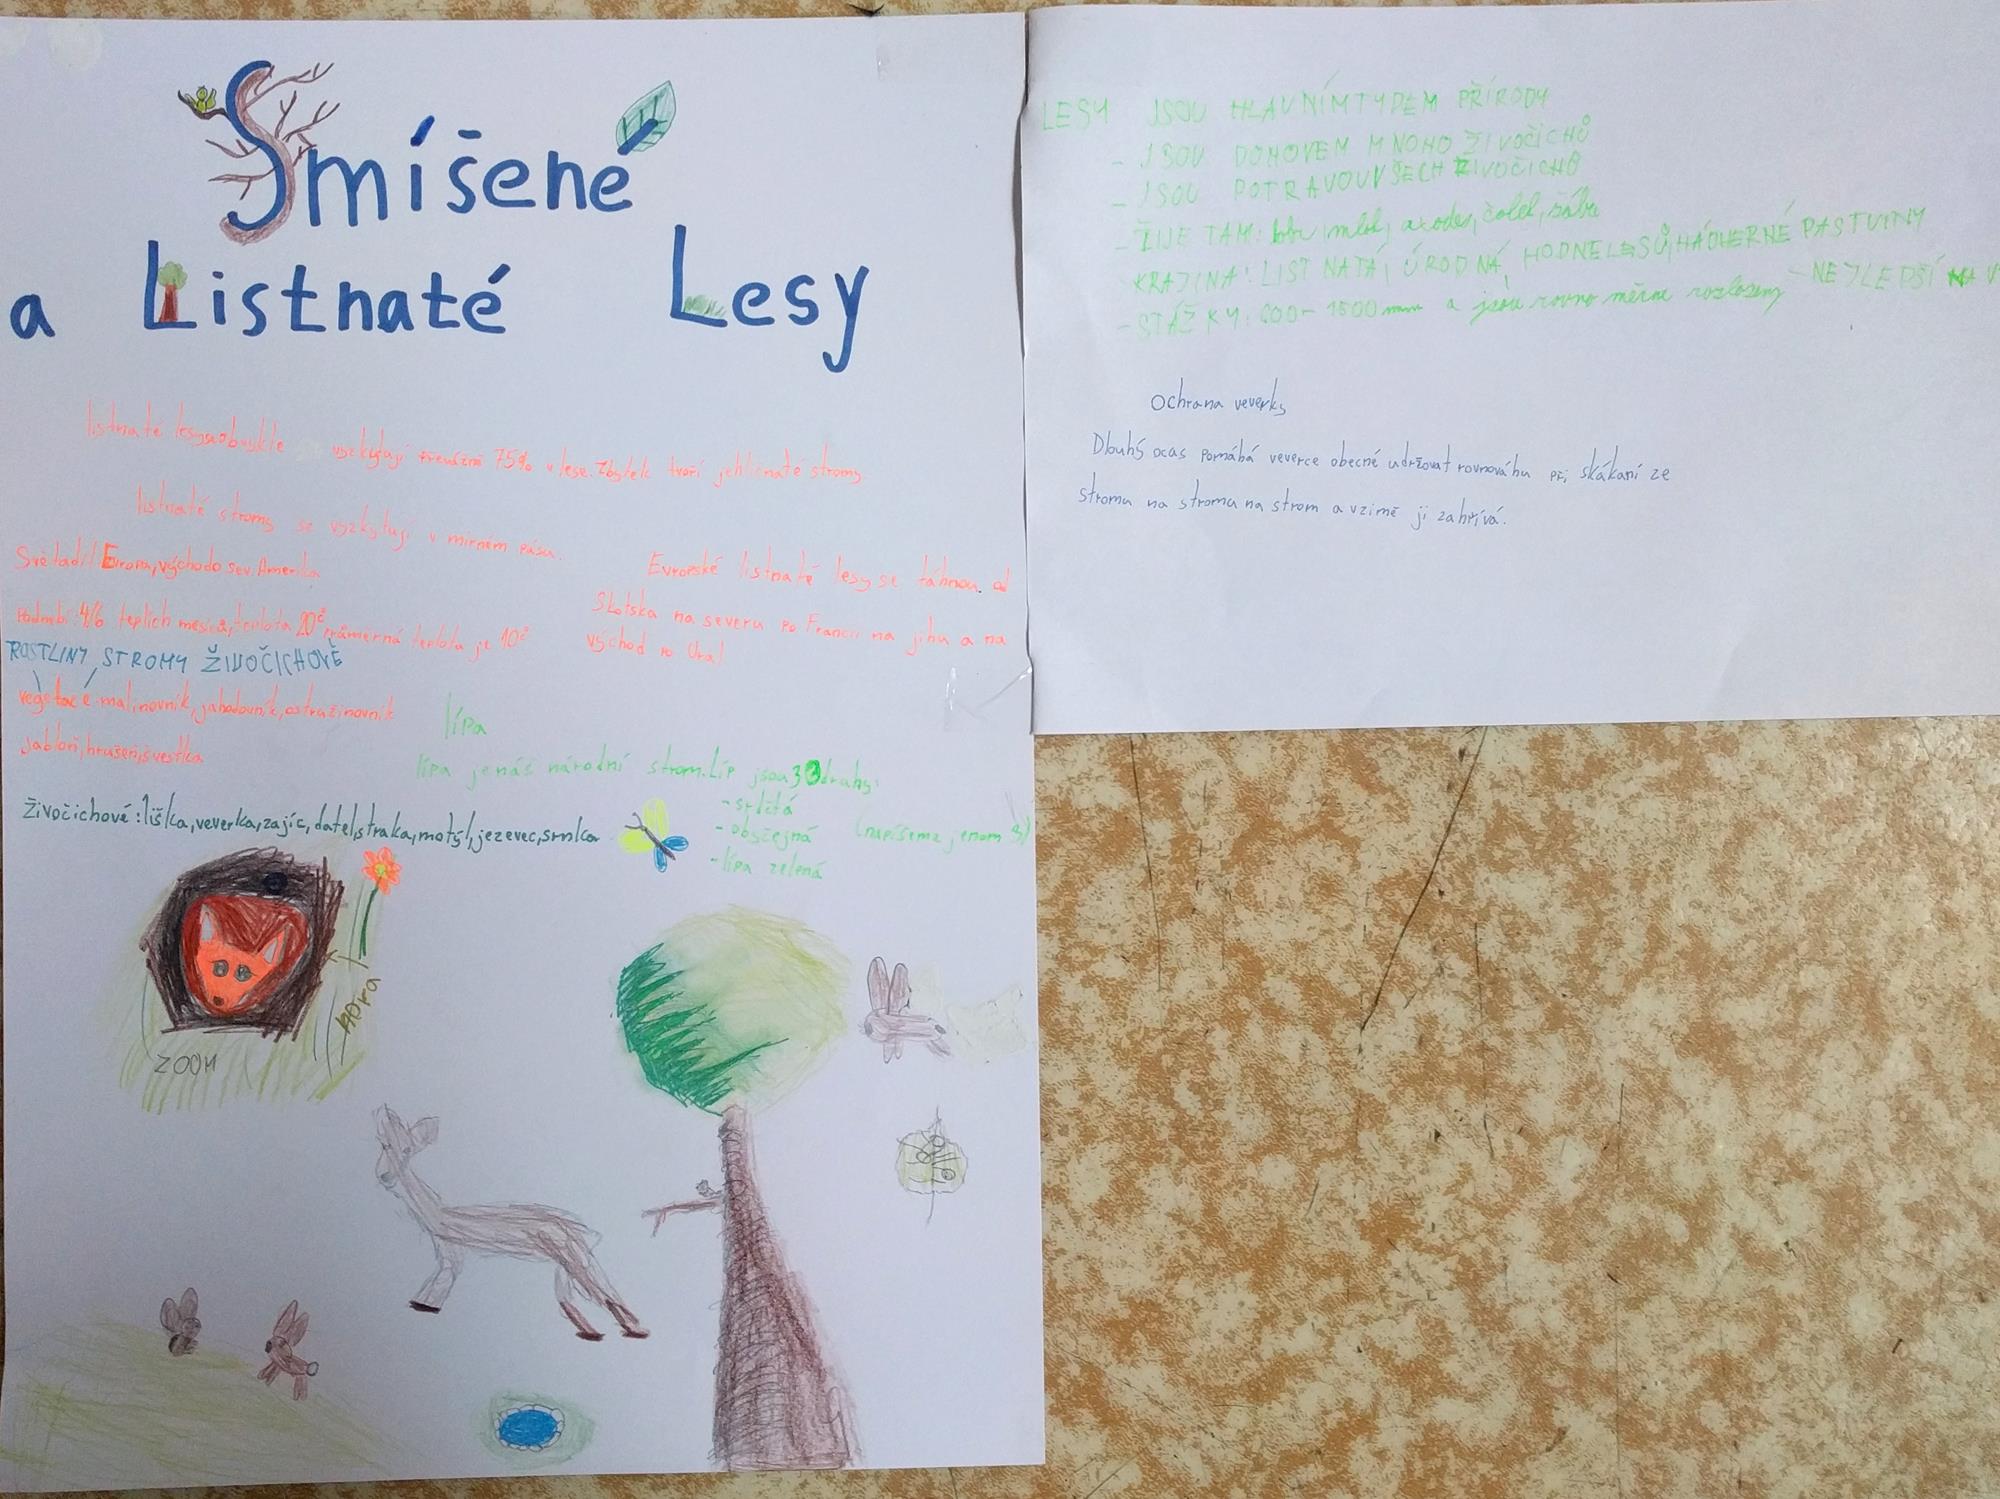 Smíšené
a Listnaté Lesy
listnaté lesy se obvykle vyzkytují převážně 75% v lese. Zbytek tvoří jehličnaté stromy
listnaté stromy se vyzkytují v mirném pásu.
Světadíl Evropa, východo sev. Amerika
teplích mesíců, teplota 20°c průměrná teplota je 10°c
Evropské listnaté lesy se táhnou od
Skotska na severu po Francii na jihu a na
východ po Ural
ROSTLINY, STROMY ŽIVOČICHOVÉ
vegetace malinovník, jahodovník, ostružinovník
jabloň, hrušeň, švestka
lípa
lípa je náš národní strom. Líp jsou 30 druhy:
- srdčitá
- obyčejná (napíšeme jenom 3)
- lípa zelená
Živočichové: liška, veverka, zajíc, datel, straka, motýl, jezevec, srnka
nora
ZOOM
LESY JSOU HLAVNÍM TYDEM PŘÍRODY
- JSOU DOMOVEM MNOHO ŽIVOČICHŮ
- JSOU POTRAVOU VŠECH ŽIVOČICHŮ
- ŽIJE TAM: bobr, mlok, čolek, žába
KRAJINA: LISTNATÁ, ÚRODNÁ, HODNE LESŮ, NÁDHERNÉ PASTVINY
- NEJLEPŠÍ NA V
- STÁŽKY: 600 - 1500 mm a jsou rovno měrne rozloženy
Ochrana veverky
Dlouhý ocas pomáhá veverce obecné udržovat rovnováhu při skákaní ze
stromu na stromu na strom a vzimě ji zahřívá.